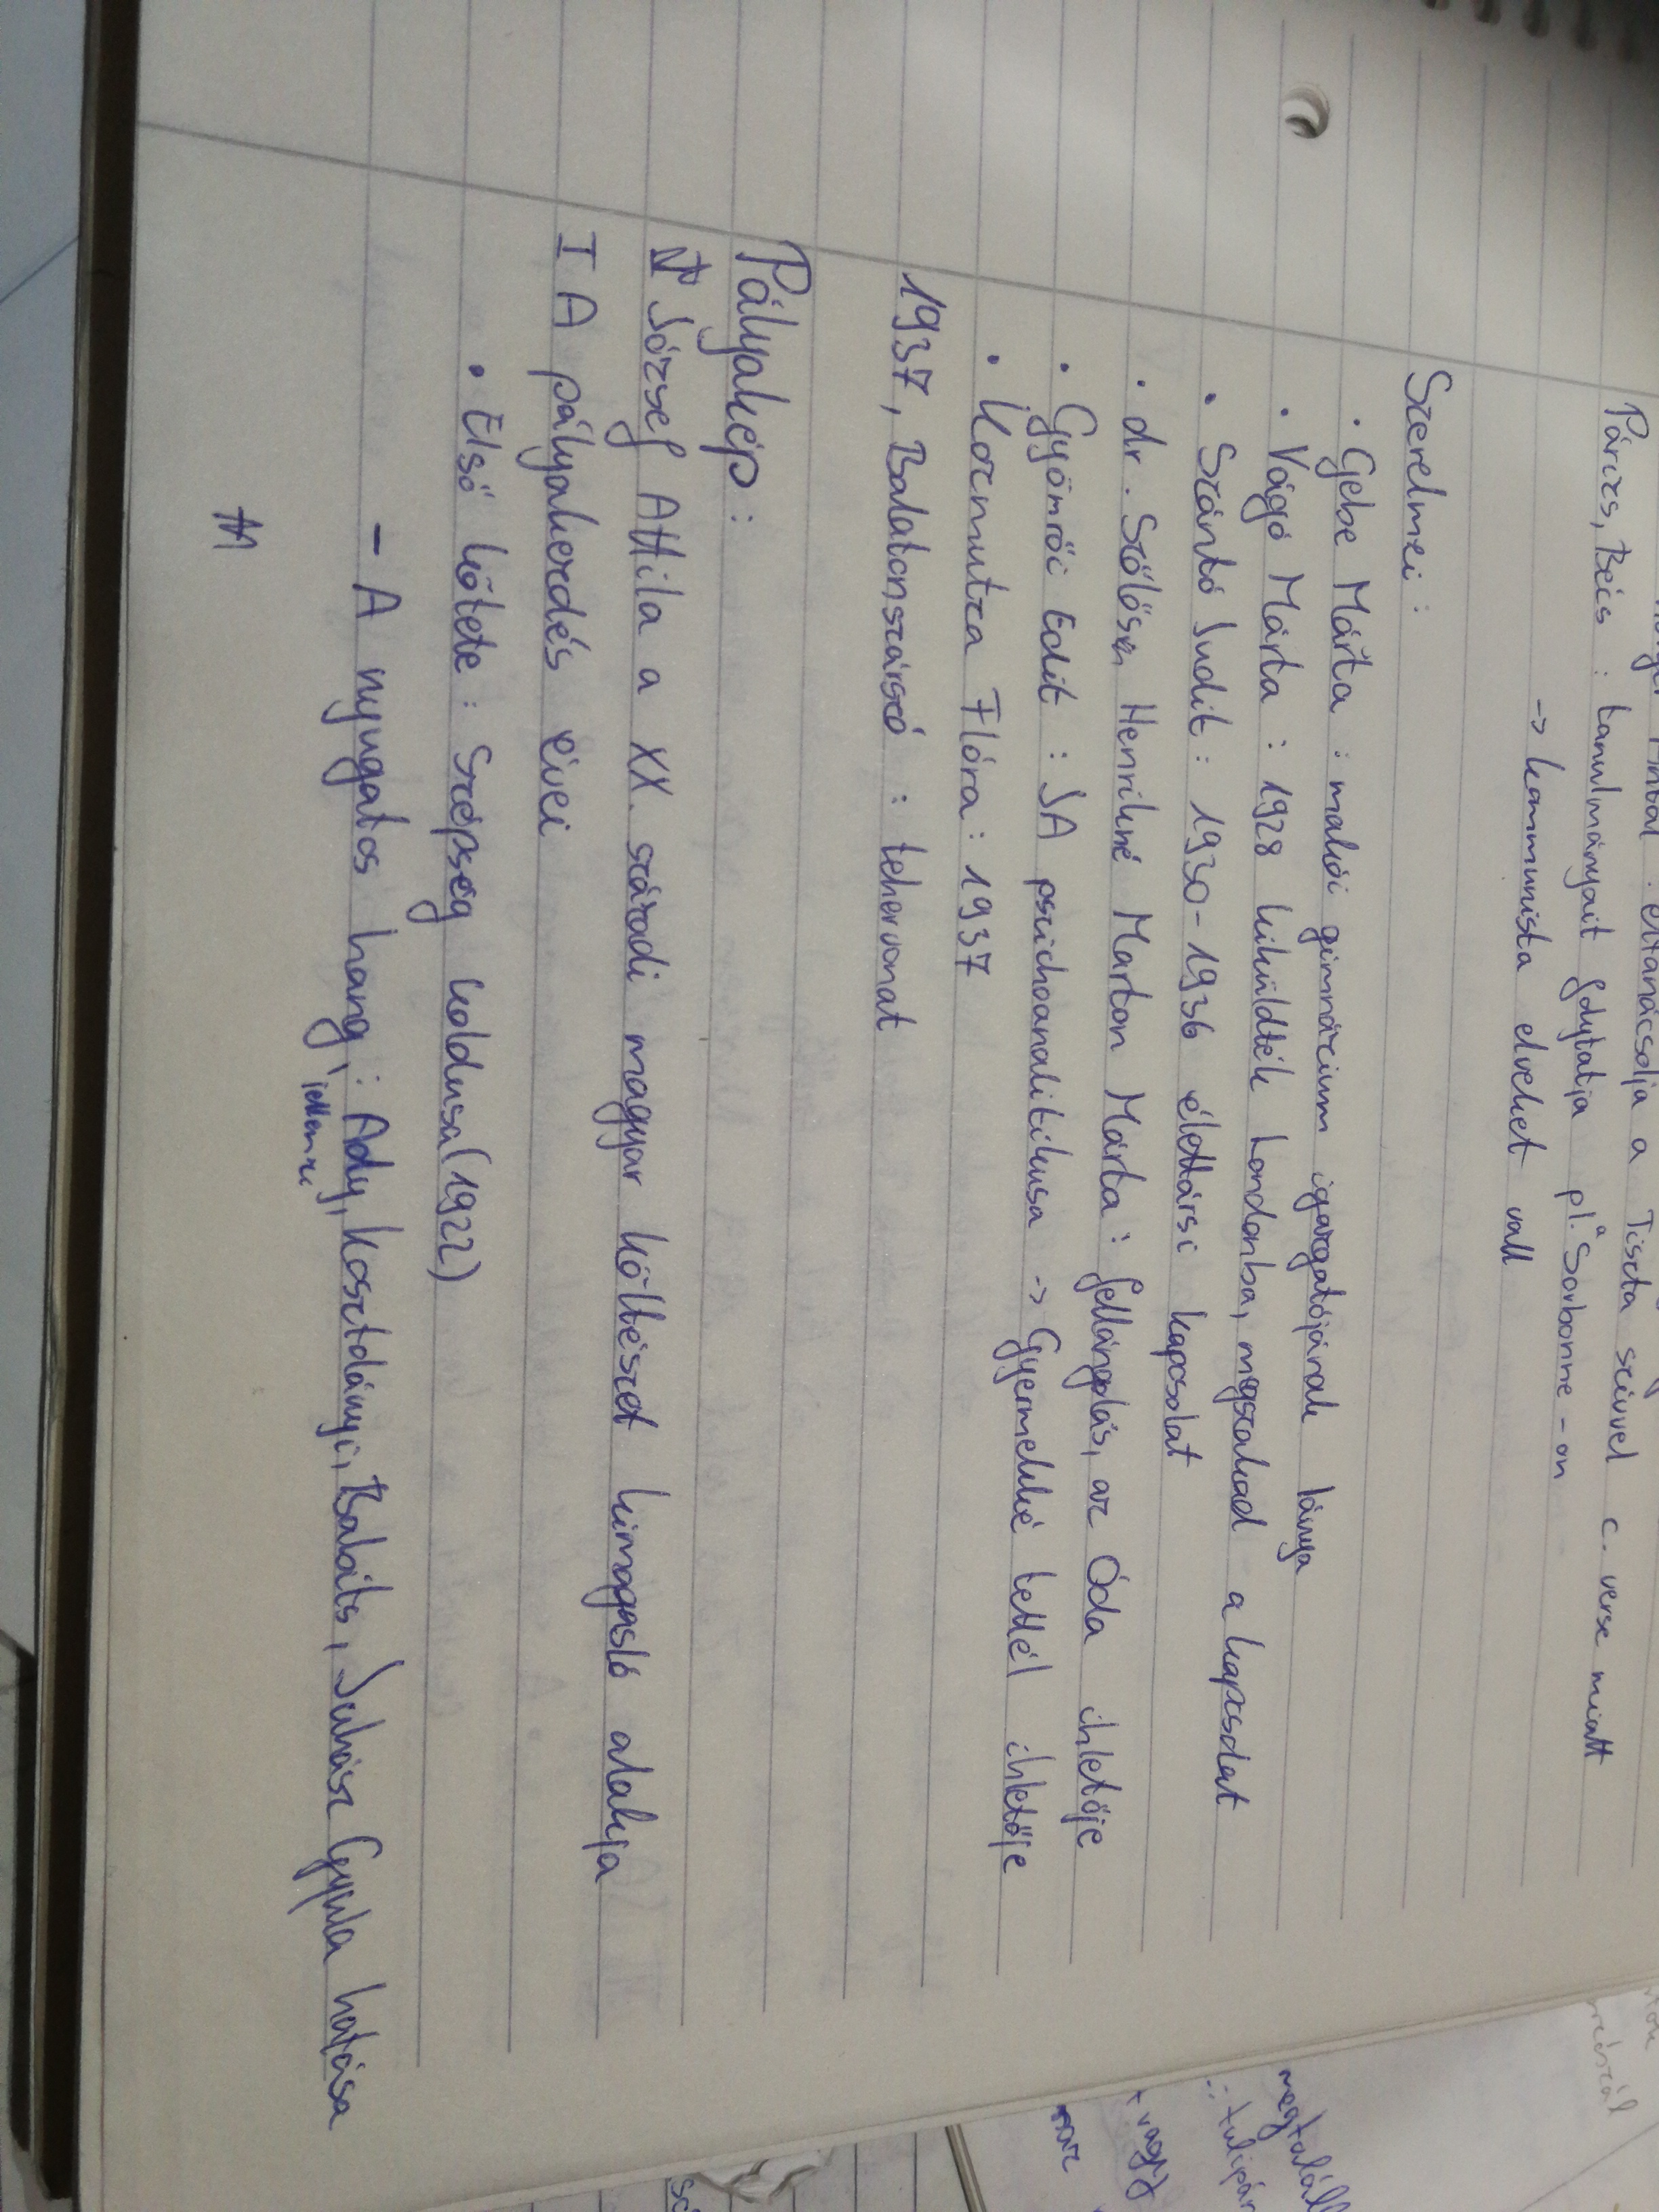 eltanácsolja a Tiszta szívvel c. verse miatt
Párizs, Bécs : tanulmányait folytatja pl. Sorbonne-on
-> kommunista elveket vall
Szerelmei :
• Gebe Márta : makói gimnázium igazgatójának lánya
• Vágó Márta : 1928 kiküldték Londonba, megszakad a kapcsolat
• Szántó Judit : 1930-1936 élettársi kapcsolat
• dr. Szőlősi Henrikné Marton Márta : fellángolás, az Óda ihletője
• Gyömrői Edit : JA pszichoanalitikusa -> Gyermekké tettél ihletője
• Kozmutza Flóra : 1937
1937, Balatonszárszó : tehervonat
Pályakép :
József Attila a XX. századi magyar költészet kimagasló alakja
I A pályakezdés évei
• Első kötete : Szépség koldusa (1922)
– A nyugatos hang : Ady, Kosztolányi, Babits, Juhász Gyula hatása
jellemzi
megtalál
tulipán
vagy